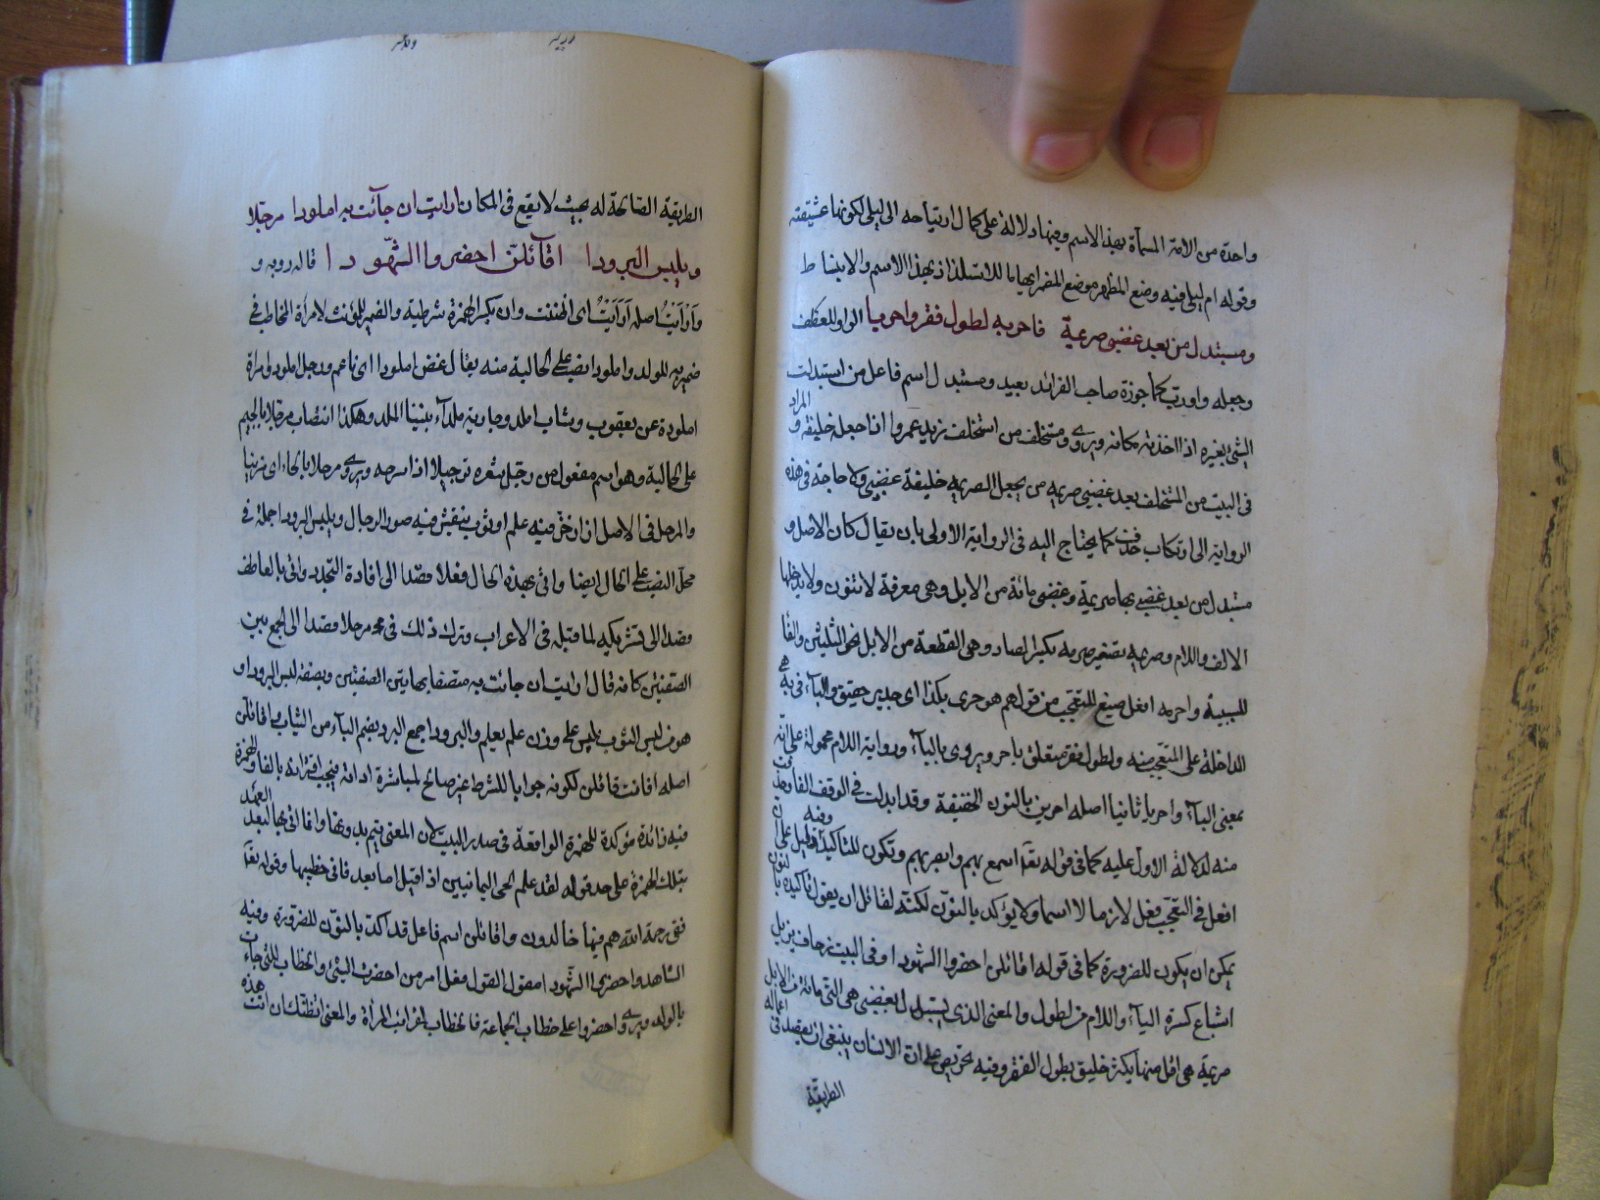 واحدة من الامة المسماة بهذا الاسم وفيها دلالة على كمال ارتياحه الى ليلى لكونها عشيقته
وقوله ام ليلى فيه وضع المظهر موضع المضمر ايهاما للاستلذاذ بهذا الاسم والانبساط
ومستبدل من بعد غضبى صريمة فاحر به لطول فقر واحريا الواو للعطف
وجعله واو رب كما جوزة صاحب الفرائد بعيد ومستبدل اسم فاعل من استبدلت
الشئ بغيره اذا اخذته مكانه ويروى ومستخلف من استخلف زيد عمروا اذا جعله خليفة و المراد
فى البيت من المستخلف بعد غضبى صريمة من يجعل الصريمة خليفة غضبى ولا حاجة فى هذه
الرواية الى ارتكاب حذف كما يحتاج اليه فى الرواية الاولى بان يقال كان الاصل و
مستبدل من بعد غضبى بها صريمة وغضبى مائة من الابل وهى معرفة لا تنون ولا يدخلها
الالف واللام وصريمة تصغير صرمة بكسر الصاد وهى القطعة من الابل نحو الثلثين والفا
للسببية واحر به افعل صيغ للتعجب من قولهم هو حرى بكذا اى جدير حقيق والباء فى به هى
الداخلة على المتعجب منه ولطول فقر متعلق باحر ويروى بالباء ورواية اللام محمولة على انه
بمعنى الباء واحريا ثانيا اصله احرين بالنون الخفيفة وقد ابدلت فى الوقف الفا وحذفت
منه لدلالة الاول عليه كما فى قوله تعالى اسمع بهم وابصر بهم وتكون للتاكيد وفيه دليل على ان
افعل فى التعجب فعل لازما لا اسما ولا يؤكد بالنون لكنه لقائل ان يقول تاكيده بالنون
يمكن ان يكون للضرورة كما فى قوله اقائلن احضروا الشهودا وفى البيت زحاف يزيل
اشباع كسرة الباء واللام من لطول والمعنى الذى يستبدل بغضبى هى التى مائة من الابل
صريمة هى اقل منها بكثر خليق بطول الفقر وفيه تحريص على ان الانسان ينبغى ان يقصد فى اعماله
الطريقة
الطريقة الصالحة له بحيث لا يقع فى المكان ارايت ان جآئت به املودا مرجلا
ويلبس البرودا اقآئلن احضروا الشهودا قاله روبه و
وارايت اصله أرأيت اى اخبرنى وان بكسر الهمزة شرطية والضمير للمؤنث لامرأة المخاطب فى
ضمير به للولد واملودا نصب على الحالية منه يقال غصن املودا اى ناعم ورجل املود وامراة
املودة عن يعقوب وشاب املد وجارية ملدآء بينيا الملد وهكذا انتصاب مرجلا بالجيم
على الحالية وهو اسم مفعول من رجل شعره ترجيلا اذا سرحه ويروى مرحلا بالحاء اى مزينا
والمرحل فى الاصل ازار خز فيه علم او ثوب ينقش فيه صور الرجال ويلبس البرودا جملة فى
محل النصب على الحال ايضا واتى بهذه الحال فعلا قصدا الى افادة التجدد واتى بالعاطف
قصدا الى تشريكه لما قبله فى الاعراب وترك ذلك فى مرجلا قصدا الى الجمع بين
الصفتين كانه قال ارايت ان جائت به متصفا بهاتين الصفتين وبصفة لبس البرودا و
هو من لبس الثوب يلبس على وزن علم يعلم والبرودا جمع البرد بضم الباء من الثياب واقائلن
اصله افانت قائلن لكونه جوابا للشرط غير صالح لمباشرة اداته فيجب اقترانه بالفا والهمزة
فيه زائدة مؤكدة للهمزة الواقعة فى صدر البيت لان المعنى يتم بدونها وانما اتى بها لبعد العهد
بتلك الهمزة على حد قوله لقد علم الحى اليمانيين اذ اقبل اما بعد فانى خطيبها وقوله تعالى
ففى رحمة الله هم فيها خالدون واقائلن اسم فاعل قد اكد بالنون للضرورة وفيه
الشاهد واحضروا الشهودا مقول القول فعل امر من احضرت الشئ والخطاب للتى جات
بالولد ويروى احضروا على خطاب الجماعة فالخطاب لقرائب المرأة والمعنى انظنك ان انت هذه